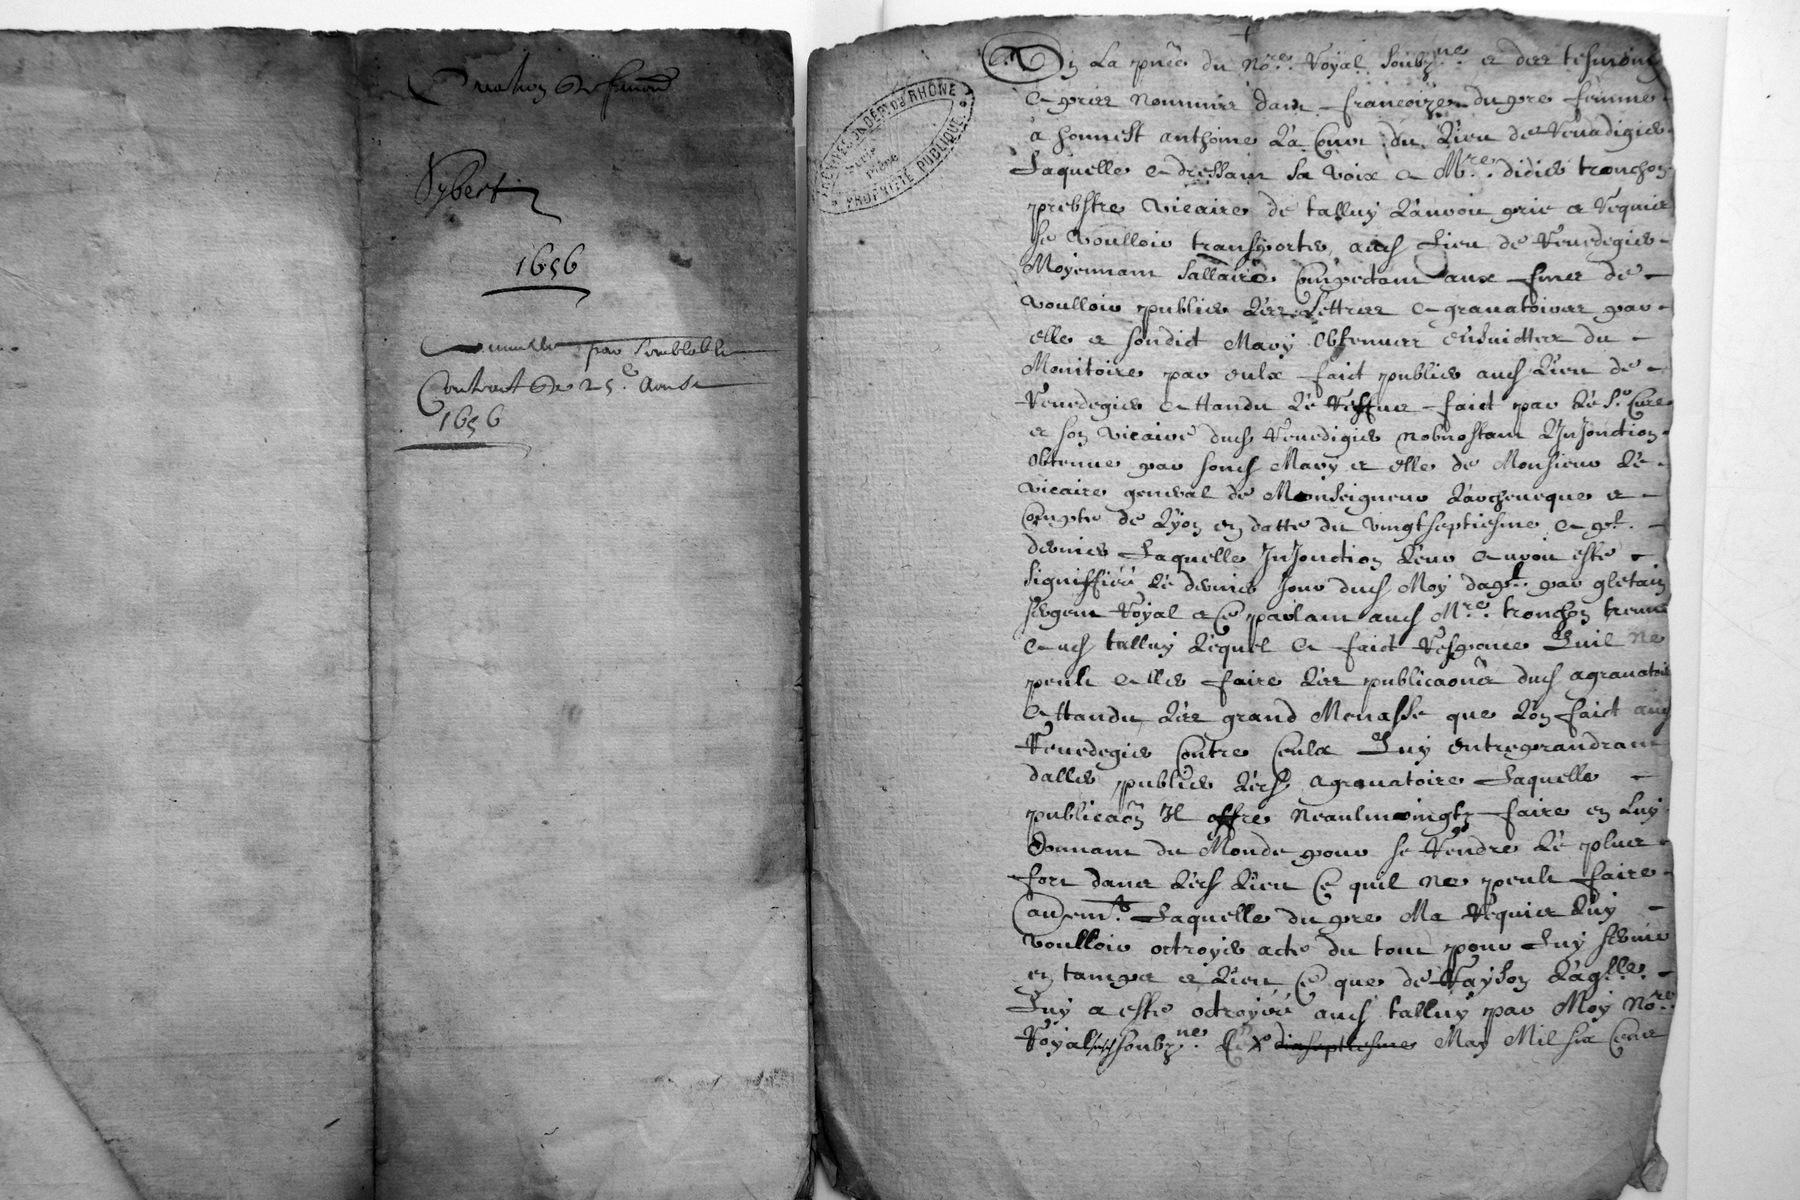 Sybert
1656
par semblable
Contract de 25e
1656
ARCHIVES DU DEPT DU RHONE
PROPRIÉTÉ PUBLIQUE
En La pnce du Nore Royal soubzne et des tesmoing
a pres nommes dam francoize dupre femme
a honnest anthoine La Cour du Lieu de Venadigies
Laquelle a dressam sa voix a Mre didies tronchon
prebstre vicaire de talluy Lauroit prie et requis
se voulloir transportes aud Lieu de Venedegies
Moyennam sallaire Competam aux fines de
voulloir publies Les Lettres agravatoires par
elle et sondict Mary obtenues ensuittes du
Monitoire par eulx faict publies aud Lieu de
Venedegies attandu Le reffus faict par Le Sr Cure
et son vicaire dud Venedigies nobnostam LInJonction
obtenue par sond Mary et elle de Monsieur Le
vicaire general de Monseigneur Larcheveque et
Compte de Lyon en datte du vingtseptiesme
dernies Laquelle InJonction Leur auroit este
signiffiée Le dernies Jour dud Moy par gletain
sergent Royal a Ce parlam aud Mre tronchon
aud talluy Lequel a faict Responce Quil ne
peult alles faire Les publicaons dud agravatoire
attandu Les grand Menasse que Lon faict aud
Venedegies Contre Ceulx Quy entreprandram
dalles publies Lesd agravatoire Laquelle
publicaon Il offre Neaulmoingtz faire en Luy
donnam du Monde pour se Rendre Le plus
fort dans Lesd Lieu Ce quil ne peult faire
Laquelle dupre Ma requis Luy
voulloir octroyes acte du tout pour Luy servir
en tamps et Lieu Ce que de Rayson Laglle
Luy a este octroyée aud talluy par Moy Nore
Royal soubzne Le X dixseptiesme May Mil six Cens